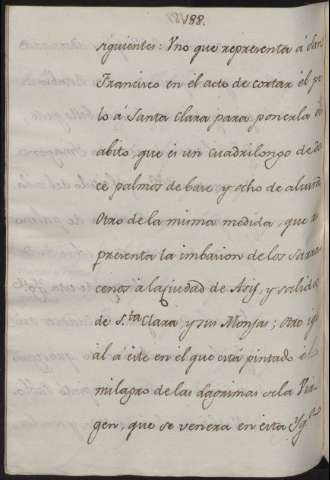 188.
siguientes: Vno que representa á San
Francisco en el acto de cortar el pe
lo á Santa Clara para ponerla el
abito, que es un cuadrilongo de do
ce palmos de base, y ocho de altura
Otro de la misma medida, que re
presenta la imbasion de los Sarra
cenos á la ciudad de Asis, y salida
de S.ta Clara y sus Monjas; Otro igu
al á este en el que está pintado el
milagro de las lagrimas de la Vir
gen, que se venera en esta Ygª